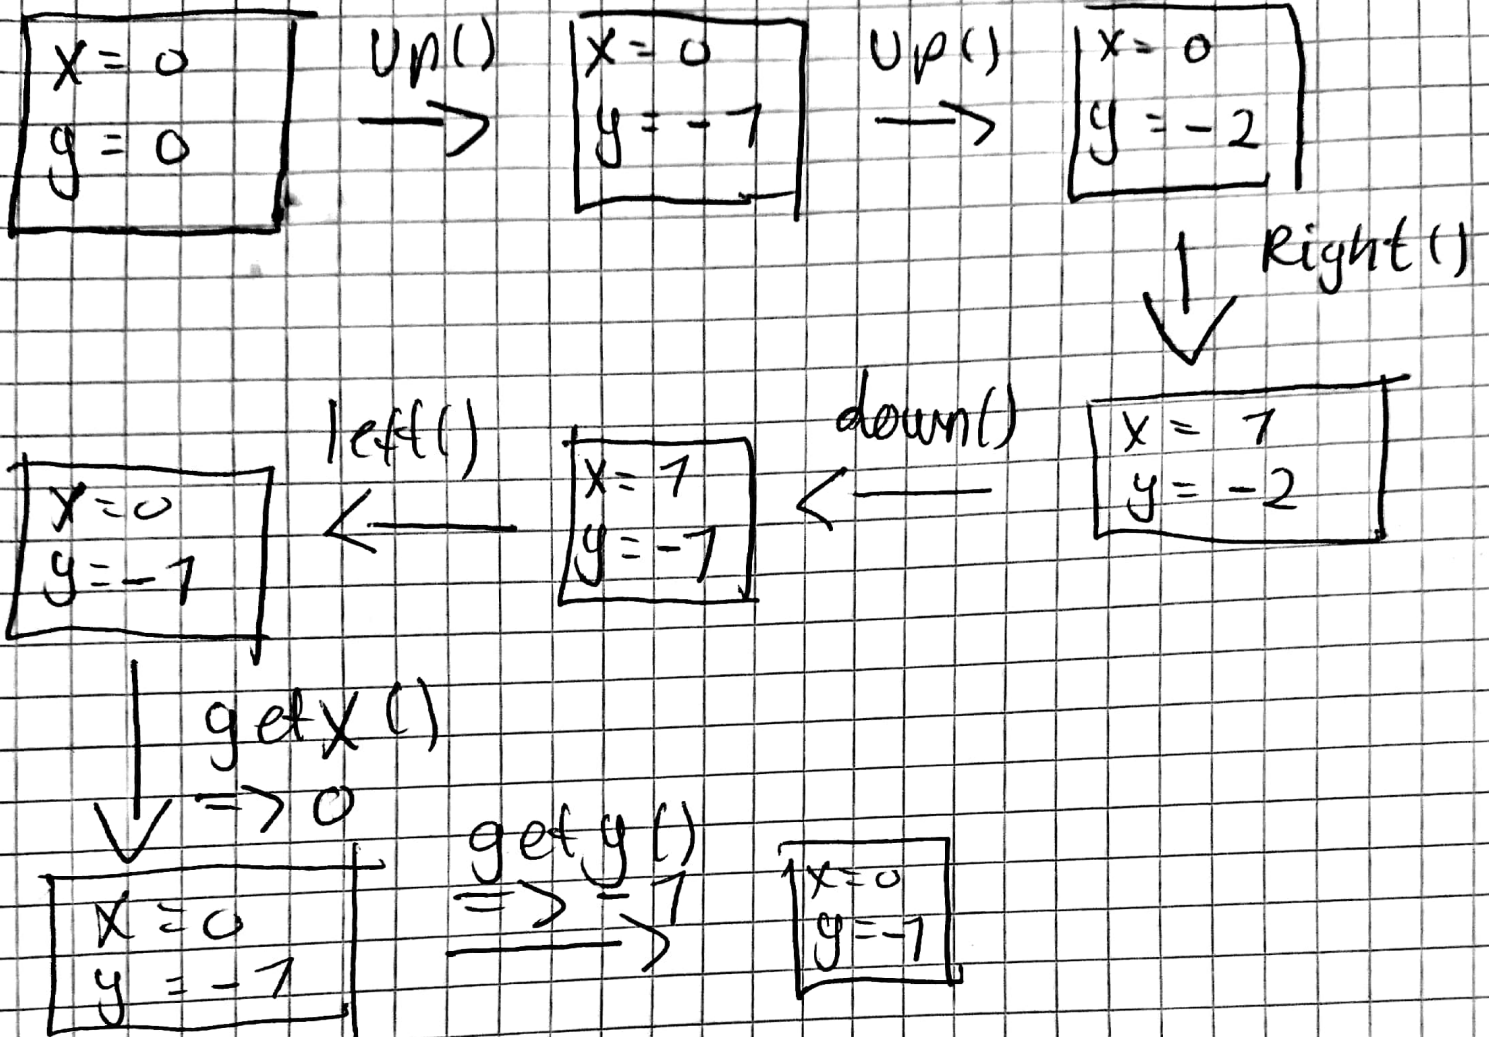 x = 0
y = 0
Up()
x = 0
y = -1
Up()
x = 0
y = -2
Right()
x = 1
y = -2
down()
x = 1
y = -1
left()
x = 0
y = -1
getX()
=> 0
x = 0
y = -1
gety()
=> -1
x = 0
y = -1